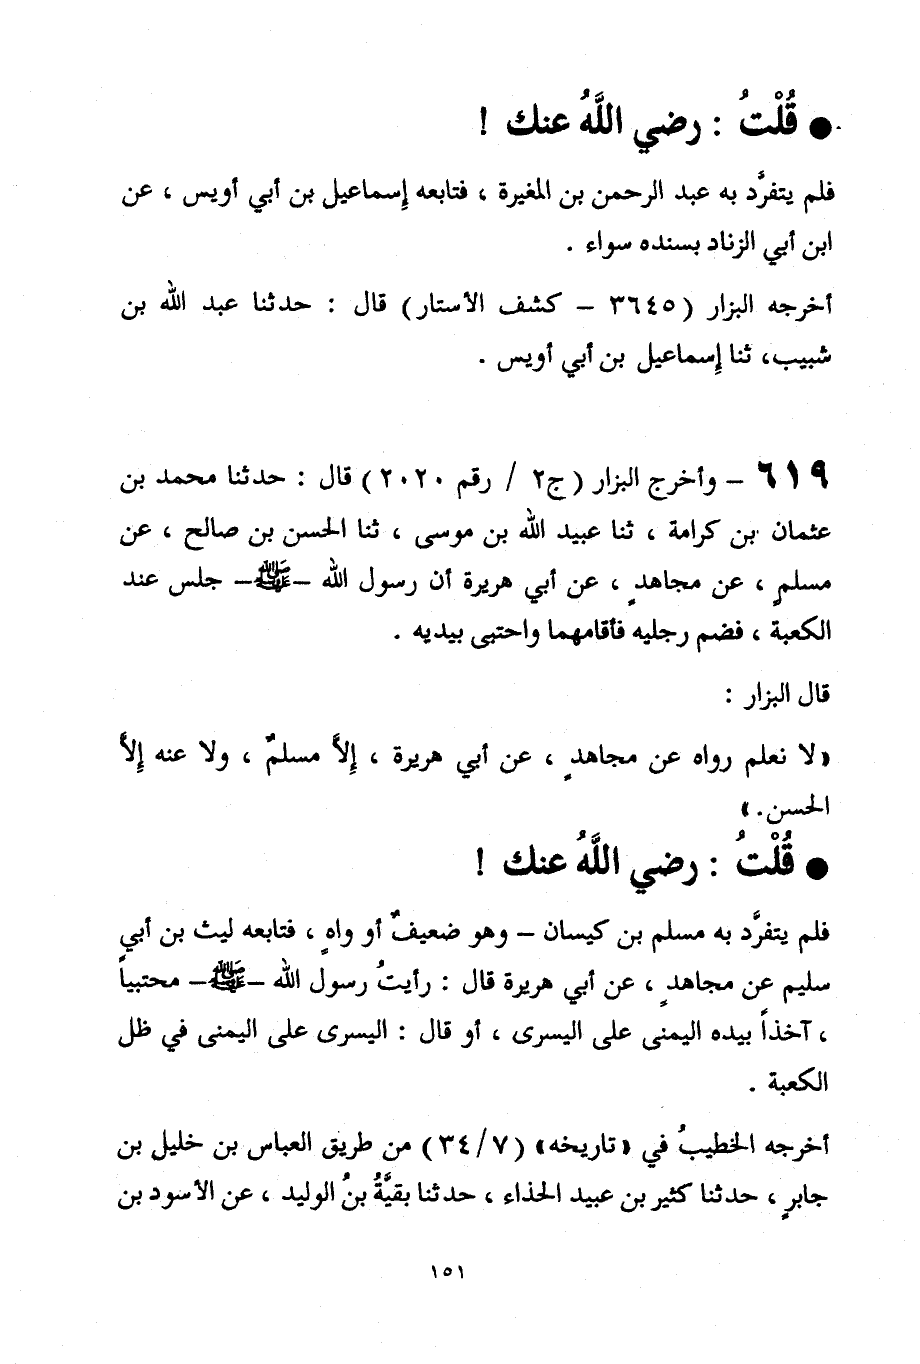 ● قُلْتُ : رضي اللَّهُ عنك !
فلم يتفرَّد به عبد الرحمن بن المغيرة ، فتابعه إسماعيل بن أبي أويس ، عن
ابن أبي الزناد بسنده سواء .
أخرجه البزار (٣٦٤٥ – كشف الأستار) قال : حدثنا عبد الله بن
شبيب، ثنا إسماعيل بن أبي أويس .
٦١٩ – وأخرج البزار (ج٢ / رقم ٢٠٢٠) قال : حدثنا محمد بن
عثمان بن كرامة ، ثنا عبيد الله بن موسى ، ثنا الحسن بن صالح ، عن
مسلمٍ ، عن مجاهدٍ ، عن أبي هريرة أن رسول الله –ﷺ– جلس عند
الكعبة ، فضم رجليه فأقامهما واحتبى بيديه .
قال البزار :
«لا نعلم رواه عن مجاهدٍ ، عن أبي هريرة ، إلاَّ مسلمٌ ، ولا عنه إلاَّ
الحسن.»
● قُلْتُ : رضي اللَّهُ عنك !
فلم يتفرَّد به مسلم بن كيسان – وهو ضعيفٌ أو واهٍ ، فتابعه ليث بن أبي
سليم عن مجاهدٍ ، عن أبي هريرة قال : رأيتُ رسول الله –ﷺ– محتبياً
، آخذاً بيده اليمنى على اليسرى ، أو قال : اليسرى على اليمنى في ظل
الكعبة .
أخرجه الخطيبُ في «تاريخه» (٣٤/٧) من طريق العباس بن خليل بن
جابرٍ ، حدثنا كثير بن عبيد الحذاء ، حدثنا بقيَّةُ بنُ الوليد ، عن الأسود بن
١٥١